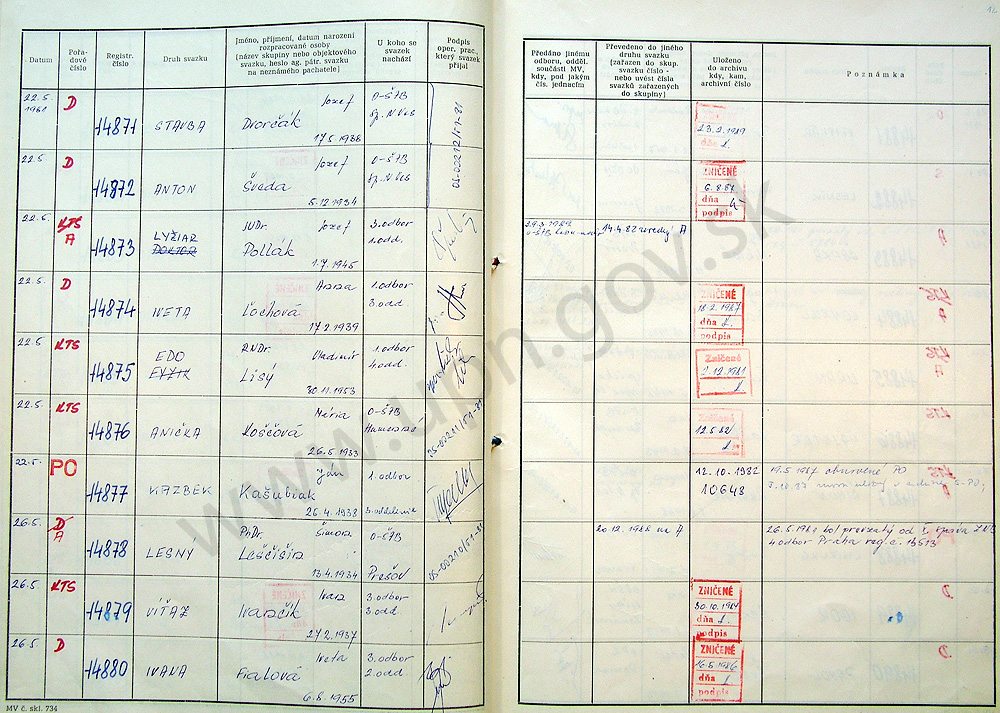 Datum
Pořa-
dové
číslo
Registr.
číslo
Druh svazku
Jméno, příjmení, datum narození
rozpracované osoby
[název skupiny nebo objektového
svazku, heslo ag. pátr. svazku
na neznámého pachatele]
U koho se
svazek
nachází
Podpis
oper. prac.,
který svazek
přijal
Předáno jinému
odboru, odděl.
součásti MV,
kdy, pod jakým
čís. jednacím
Převedeno do jiného
druhu svazku
(zařazen do skup.
svazku číslo -
nebo uvést čísla
svazků zařazených
do skupiny)
Uloženo
do archivu
kdy, kam,
archivní číslo
Poznámka
22.5.
1981
D
14871
STAVBA
Jozef
Dvorčák
17.5.1938
O-ŠtB
Sp. N Ves
OS-00212/01-81
23.2.1989
dňa
22.5.
D
14872
ANTON
Jozef
Šveda
5.12.1934
O-ŠtB
Sp. N Ves
ZNIČENÉ
6.8.81
dňa
podpis
22.5.
KTS
A
14873
LYŽIAR
DOKTOR
JUDr. Jozef
Pollák
1.7.1945
3.odbor
1.odd.
14.4.82 A
22.5.
D
14874
IVETA
Anna
Lochová
17.2.1939
1.odbor
3.odd.
ZNIČENÉ
18.2.1987
dňa
podpis
22.5.
KTS
14875
EDO
RNDr. Vladimír
Lisý
30.11.1953
1.odbor
4.odd.
Zničené
2.12.1981
22.5.
KTS
14876
ANIČKA
Mária
Koščová
26.5.1933
O-ŠtB
Humenné
OS-00211/01-81
Zničené
12.5.82
22.5.
PO
14877
KAZBEK
Ján
Kašubiak
26.4.1938
1.odbor
3.oddelenie
12.10.1982
10648
26.5.
D
A
14878
LESNY
PhDr. Šimona
Leščišin
13.4.1934
O-ŠtB
Prešov
OS-00210/01-81
20.12.1988 na A
26.5.1981 bol prevzatý od
4 odbor Praha reg.č. 13513
26.5.
KTS
14879
VÍŤAZ
Ivan
Ivančík
27.2.1937
3.odbor
3.odd.
ZNIČENÉ
30.10.1984
dňa
podpis
26.5.
D
14880
IVANA
Iveta
Fialová
6.8.1955
3.odbor
2.odd.
ZNIČENÉ
16.5.1986
dňa
podpis
MV č. skl. 734
www.upn.gov.sk